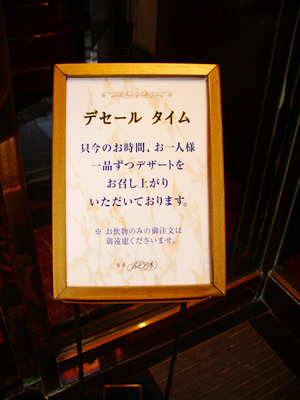 デセール タイム
只今のお時間、お一人様
一品ずつデザートを
お召し上がり
いただいております。
※ お飲物のみの御注文は
御遠慮くださいませ。